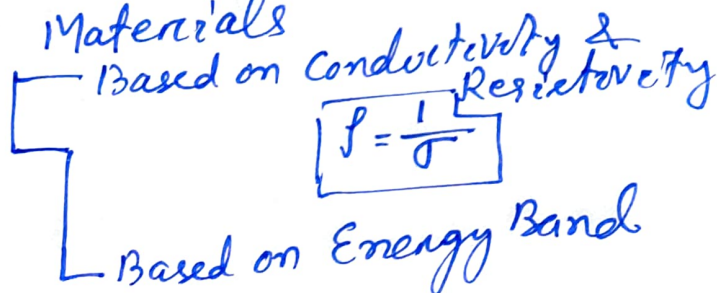 Materials
Based on Conductivity &
Resistivity
ρ = 1/σ
Based on Energy Band